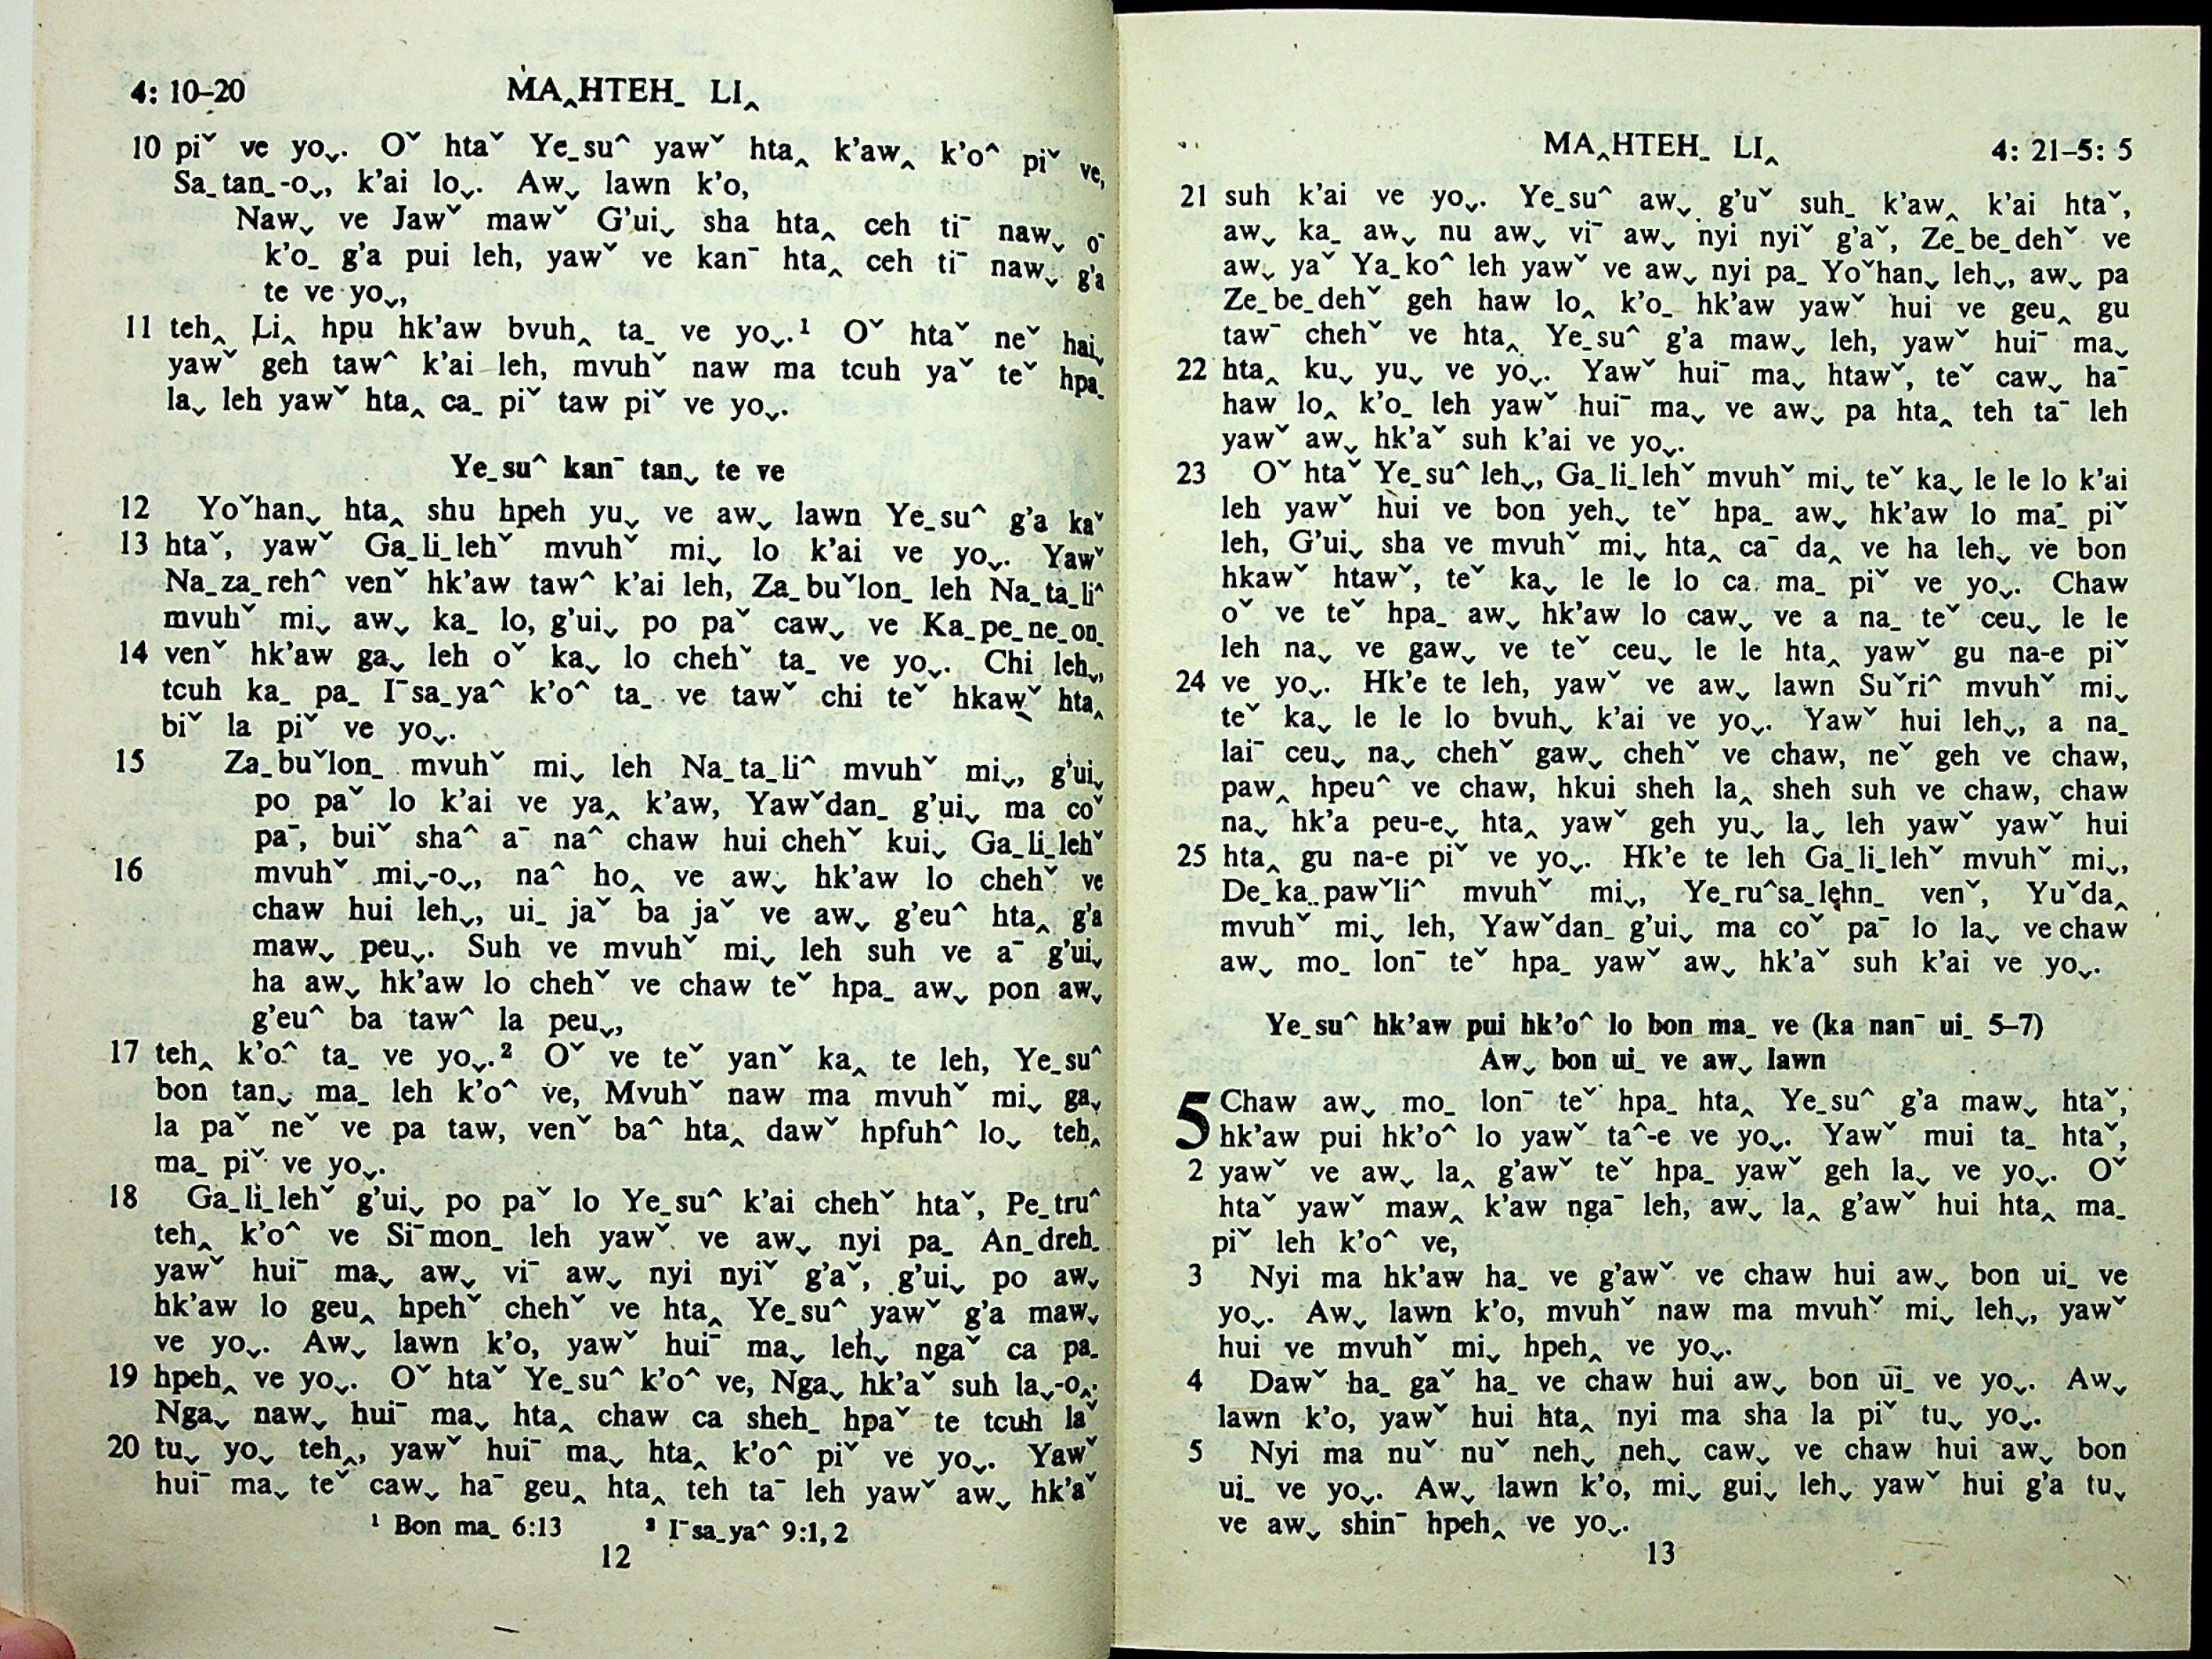 4: 10–20 MA‸HTEH_ LI‸
10 piˇ ve yo⌄. Oˇ htaˇ Ye_su^ yawˇ hta‸ k'aw‸ k'o^ piˇ ve,
Sa_tan_-o⌄, k'ai lo⌄. Aw⌄ lawn k'o,
Naw⌄ ve Jawˇ mawˇ G'ui⌄ sha hta‸ ceh tiˉ naw⌄ oˉ
k'o_ g'a pui leh, yawˇ ve kanˉ hta‸ ceh tiˉ naw⌄ g'a
te ve yo⌄,
11 teh‸ Li‸ hpu hk'aw bvuh‸ ta_ ve yo⌄.¹ Oˇ htaˇ neˇ hai⌄
yawˇ geh taw^ k'ai leh, mvuhˇ naw ma tcuh yaˇ teˇ hpa_
la⌄ leh yawˇ hta‸ ca_ piˇ taw piˇ ve yo⌄.
Ye_su^ kanˉ tan⌄ te ve
12 Yoˇhan⌄ hta‸ shu hpeh yu⌄ ve aw⌄ lawn Ye_su^ g'a kaˇ
13 htaˇ, yawˇ Ga_li_lehˇ mvuhˇ mi⌄ lo k'ai ve yo⌄. Yawˇ
Na_za_reh^ venˇ hk'aw taw^ k'ai leh, Za_buˇlon_ leh Na_ta_li^
mvuhˇ mi⌄ aw⌄ ka_ lo, g'ui⌄ po paˇ caw⌄ ve Ka_pe_ne_on_
14 venˇ hk'aw ga⌄ leh oˇ ka⌄ lo chehˇ ta_ ve yo⌄. Chi leh⌄,
tcuh ka_ pa_ Iˉsa_ya^ k'o^ ta_ ve tawˇ chi teˇ hkawˇ hta‸
biˇ la piˇ ve yo⌄.
15 Za_buˇlon_ mvuhˇ mi⌄ leh Na_ta_li^ mvuhˇ mi⌄, g'ui⌄
po paˇ lo k'ai ve ya‸ k'aw, Yawˇdan_ g'ui⌄ ma coˇ
paˉ, buiˇ sha^ aˉ na^ chaw hui chehˇ kui⌄ Ga_li_lehˇ
16 mvuhˇ mi⌄-o⌄, na^ ho‸ ve aw⌄ hk'aw lo chehˇ ve
chaw hui leh⌄, ui_ jaˇ ba jaˇ ve aw⌄ g'eu^ hta‸ g'a
maw⌄ peu⌄. Suh ve mvuhˇ mi⌄ leh suh ve aˉ g'ui⌄
ha aw⌄ hk'aw lo chehˇ ve chaw teˇ hpa_ aw⌄ pon aw⌄
g'eu^ ba taw^ la peu⌄,
17 teh‸ k'o^ ta_ ve yo⌄.² Oˇ ve teˇ yanˇ ka‸ te leh, Ye_su^
bon tan⌄ ma_ leh k'o^ ve, Mvuhˇ naw ma mvuhˇ mi⌄ ga⌄
la paˇ neˇ ve pa taw, venˇ ba^ hta‸ dawˇ hpfuh^ lo⌄ teh‸
ma_ piˇ ve yo⌄.
18 Ga_li_lehˇ g'ui⌄ po paˇ lo Ye_su^ k'ai chehˇ htaˇ, Pe_tru^
teh‸ k'o^ ve Siˉmon_ leh yawˇ ve aw⌄ nyi pa_ An_dreh_
yawˇ huiˉ ma⌄ aw⌄ viˉ aw⌄ nyi nyiˇ g'aˇ, g'ui⌄ po aw⌄
hk'aw lo geu‸ hpehˇ chehˇ ve hta‸ Ye_su^ yawˇ g'a maw⌄
ve yo⌄. Aw⌄ lawn k'o, yawˇ huiˉ ma⌄ leh⌄ ngaˇ ca pa_
19 hpeh‸ ve yo⌄. Oˇ htaˇ Ye_su^ k'o^ ve, Nga⌄ hk'aˇ suh la⌄-o‸.
Nga⌄ naw⌄ huiˉ ma⌄ hta‸ chaw ca sheh_ hpaˇ te tcuh laˇ
20 tu⌄ yo⌄ teh‸, yawˇ huiˉ ma⌄ hta‸ k'o^ piˇ ve yo⌄. Yawˇ
huiˉ ma⌄ teˇ caw⌄ haˉ geu‸ hta‸ teh taˉ leh yawˇ aw⌄ hk'aˇ
¹ Bon ma_ 6:13 ² Iˉsa_ya^ 9:1, 2
12
MA‸HTEH_ LI‸ 4: 21–5: 5
21 suh k'ai ve yo⌄. Ye_su^ aw⌄ g'uˇ suh_ k'aw‸ k'ai htaˇ,
aw⌄ ka_ aw⌄ nu aw⌄ viˉ aw⌄ nyi nyiˇ g'aˇ, Ze_be_dehˇ ve
aw⌄ yaˇ Ya_ko^ leh yawˇ ve aw⌄ nyi pa_ Yoˇhan⌄ leh⌄, aw⌄ pa
Ze_be_dehˇ geh haw lo‸ k'o_ hk'aw yawˇ hui ve geu‸ gu
tawˉ chehˇ ve hta‸ Ye_su^ g'a maw⌄ leh, yawˇ huiˉ ma⌄
22 hta‸ ku⌄ yu⌄ ve yo⌄. Yawˇ huiˉ ma⌄ htawˇ, teˇ caw⌄ haˉ
haw lo‸ k'o_ leh yawˇ huiˉ ma⌄ ve aw⌄ pa hta‸ teh taˉ leh
yawˇ aw⌄ hk'aˇ suh k'ai ve yo⌄.
23 Oˇ htaˇ Ye_su^ leh⌄, Ga_li_lehˇ mvuhˇ mi⌄ teˇ ka⌄ le le lo k'ai
leh yawˇ hui ve bon yeh⌄ teˇ hpa_ aw⌄ hk'aw lo ma_ piˇ
leh, G'ui⌄ sha ve mvuhˇ mi⌄ hta‸ caˉ da‸ ve ha leh⌄ ve bon
hkawˇ htawˇ, teˇ ka⌄ le le lo ca ma_ piˇ ve yo⌄. Chaw
oˇ ve teˇ hpa_ aw⌄ hk'aw lo caw⌄ ve a na_ teˇ ceu⌄ le le
leh na⌄ ve gaw⌄ ve teˇ ceu⌄ le le hta‸ yawˇ gu na-e piˇ
24 ve yo⌄. Hk'e te leh, yawˇ ve aw⌄ lawn Suˇri^ mvuhˇ mi⌄
teˇ ka⌄ le le lo bvuh⌄ k'ai ve yo⌄. Yawˇ hui leh⌄, a na_
laiˉ ceu⌄ na⌄ chehˇ gaw⌄ chehˇ ve chaw, neˇ geh ve chaw,
paw‸ hpeu^ ve chaw, hkui sheh la‸ sheh suh ve chaw, chaw
na⌄ hk'a peu-e⌄ hta‸ yawˇ geh yu⌄ la⌄ leh yawˇ yawˇ hui
25 hta‸ gu na-e piˇ ve yo⌄. Hk'e te leh Ga_li_lehˇ mvuhˇ mi⌄,
De_ka_pawˇli^ mvuhˇ mi⌄, Ye_ru^sa_lehn_ venˇ, Yuˇda‸
mvuhˇ mi⌄ leh, Yawˇdan_ g'ui⌄ ma coˇ paˉ lo la⌄ ve chaw
aw⌄ mo_ lonˉ teˇ hpa_ yawˇ aw⌄ hk'aˇ suh k'ai ve yo⌄.
Ye_su^ hk'aw pui hk'o^ lo bon ma_ ve (ka nanˉ ui_ 5–7)
Aw⌄ bon ui_ ve aw⌄ lawn
5 Chaw aw⌄ mo_ lonˉ teˇ hpa_ hta‸ Ye_su^ g'a maw⌄ htaˇ,
hk'aw pui hk'o^ lo yawˇ ta^-e ve yo⌄. Yawˇ mui ta_ htaˇ,
2 yawˇ ve aw⌄ la‸ g'awˇ teˇ hpa_ yawˇ geh la⌄ ve yo⌄. Oˇ
htaˇ yawˇ maw‸ k'aw ngaˉ leh, aw⌄ la‸ g'awˇ hui hta‸ ma_
piˇ leh k'o^ ve,
3 Nyi ma hk'aw ha_ ve g'awˇ ve chaw hui aw⌄ bon ui_ ve
yo⌄. Aw⌄ lawn k'o, mvuhˇ naw ma mvuhˇ mi⌄ leh⌄, yawˇ
hui ve mvuhˇ mi⌄ hpeh‸ ve yo⌄.
4 Dawˇ ha_ gaˇ ha_ ve chaw hui aw⌄ bon ui_ ve yo⌄. Aw⌄
lawn k'o, yawˇ hui hta‸ nyi ma sha la piˇ tu⌄ yo⌄.
5 Nyi ma nuˇ nuˇ neh⌄ neh⌄ caw⌄ ve chaw hui aw⌄ bon
ui_ ve yo⌄. Aw⌄ lawn k'o, mi⌄ gui⌄ leh⌄ yawˇ hui g'a tu⌄
ve aw⌄ shinˉ hpeh‸ ve yo⌄.
13